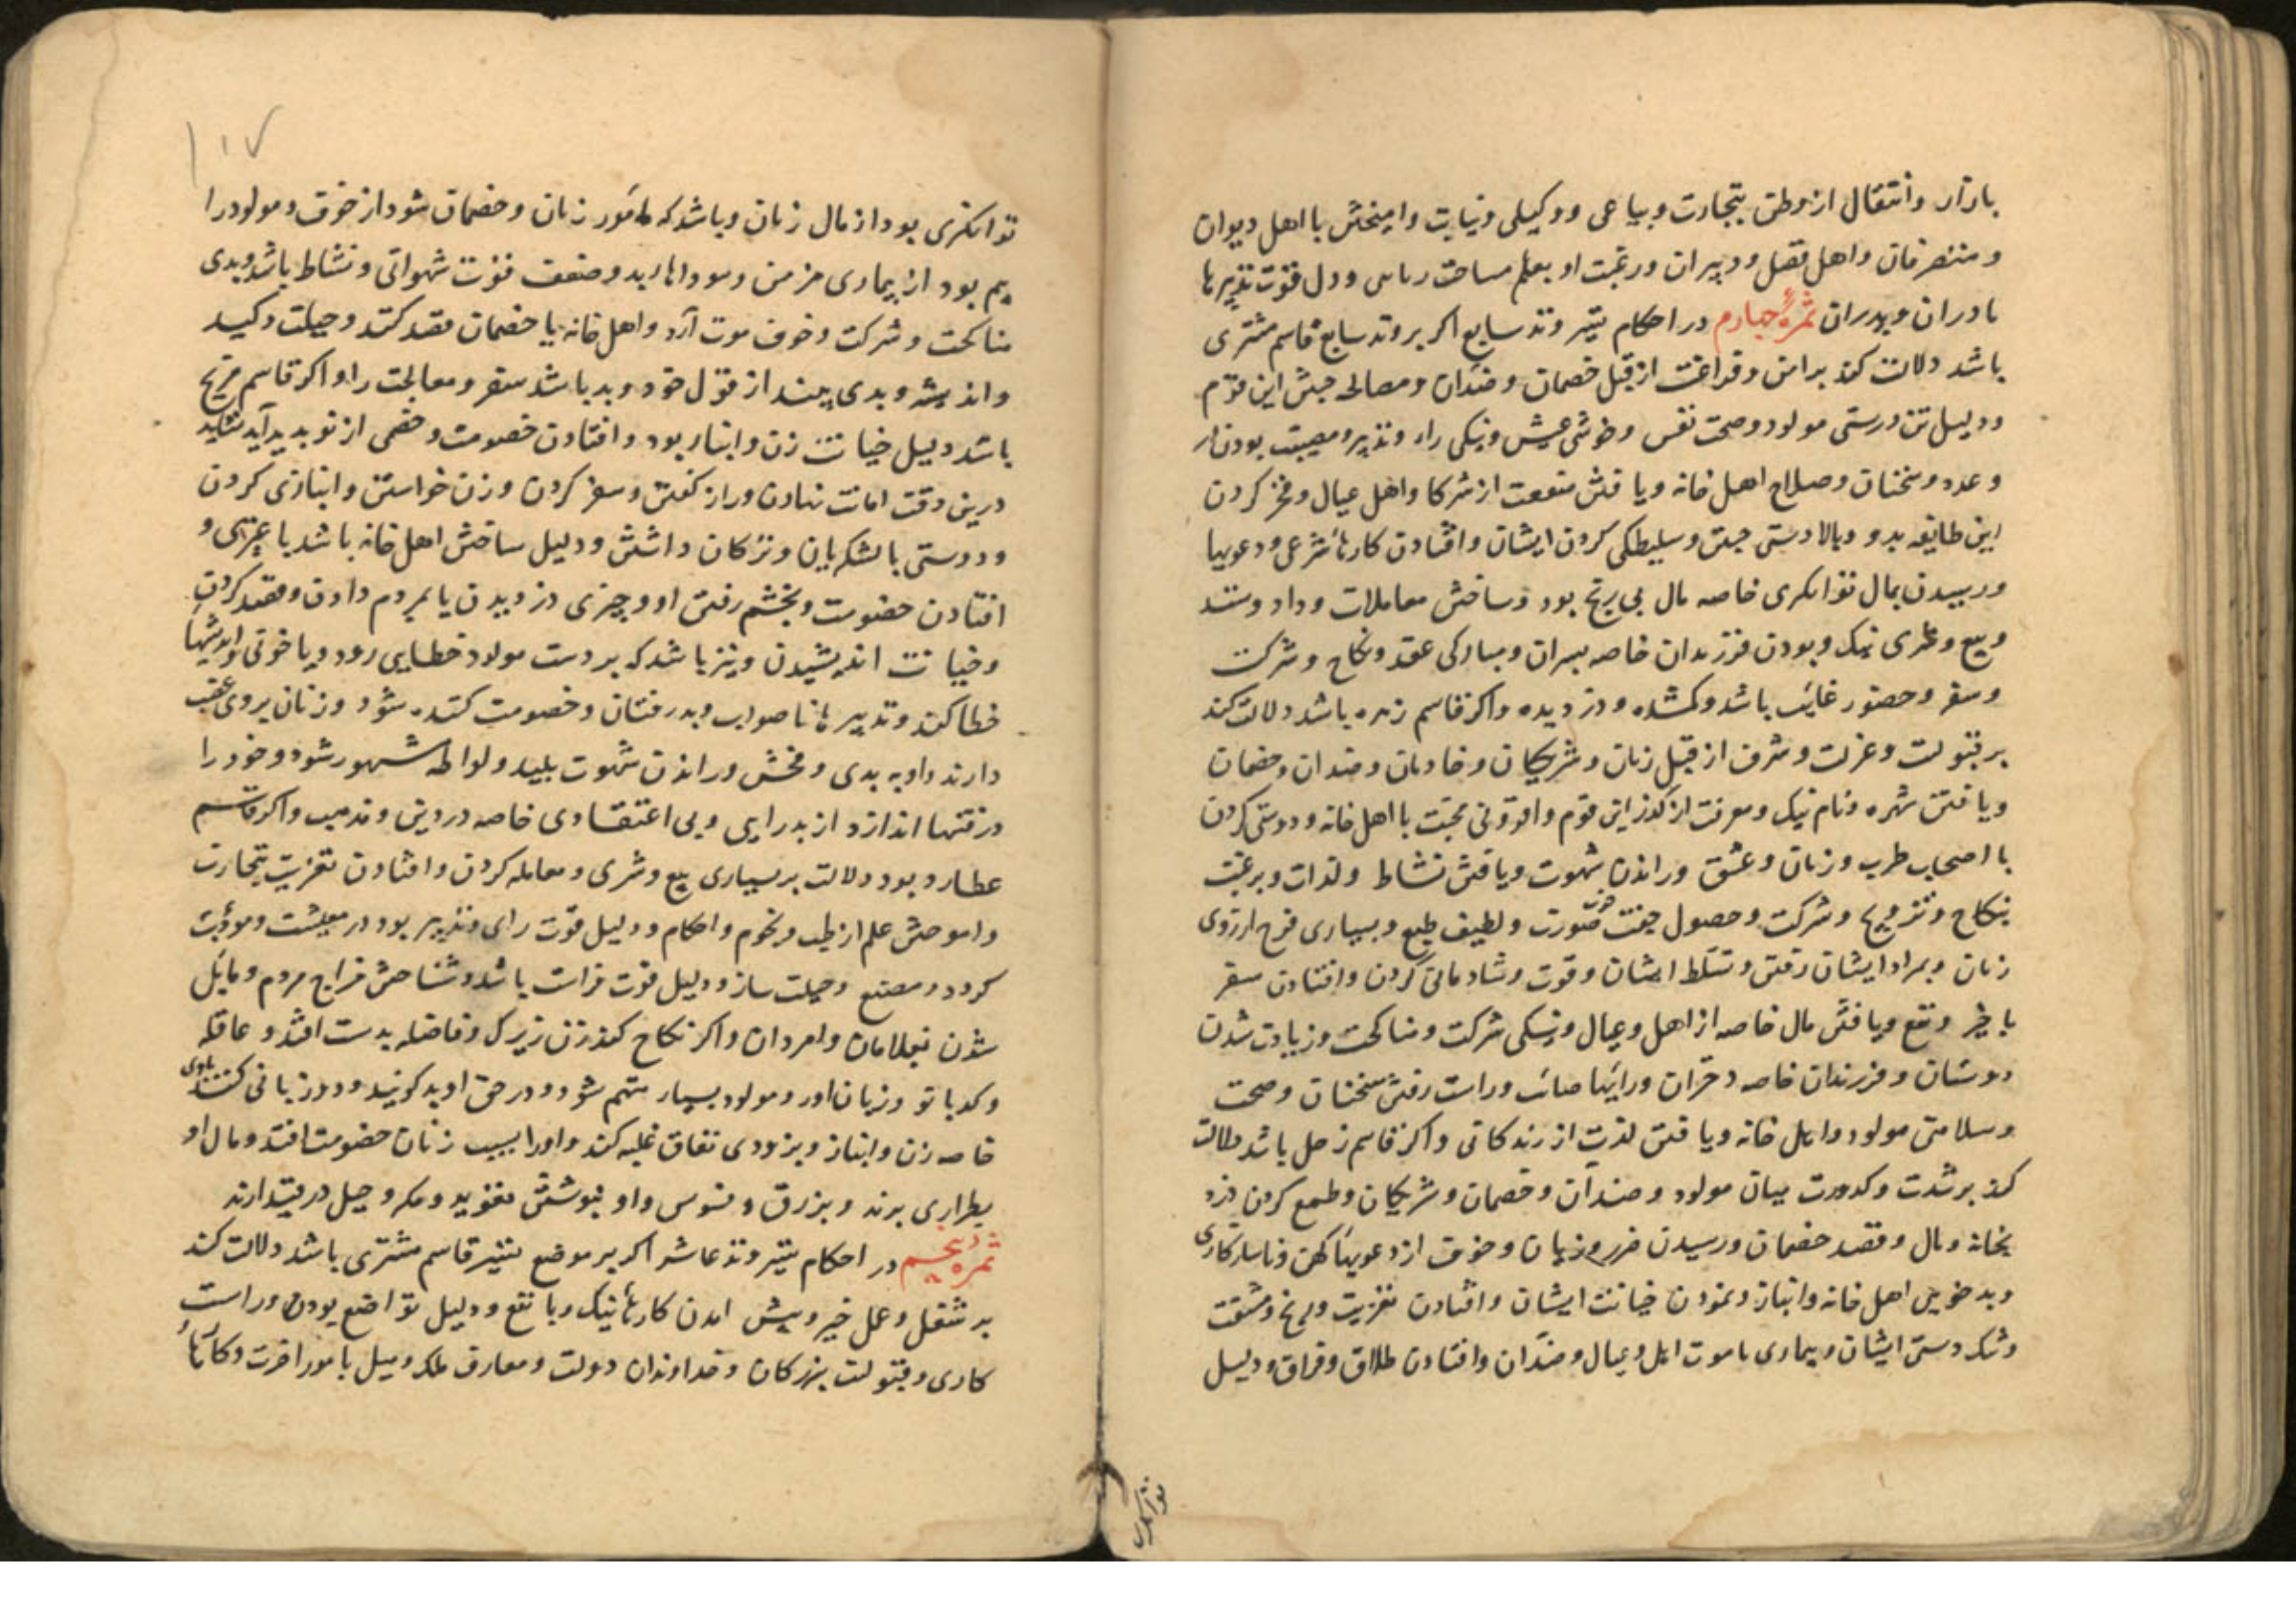 بازار و انتقال از وطن بتجارت و بیاعی و وکیلی و نیابت وامیختن با اهل دیوان
و متصرفان و اهل فضل و دبیران و رغبت او بعلم مساحت و دل قوت تدبیرها
مادران و پدران ثمرهٔ چهارم در احکام تسییر وتد سابع اکر بر وتد سابع قاسم مشتری
باشد دلالت کند بر امن و فراغت از قبل خصمان و ضدان و مصالحه جستن این قوم
و دلیل تن درستی مولود و صحت نفس و خوشی عیش و نیکی راء و تدبیر و مصیب بودن
و عدد و سخنان و صلاح اهل خانه و یافتن منفعت از شرکا و اهل عیال و فخر کردن
این طایفه بدو و بالا دستی جستن و سلیطکی کردن ایشان و افتادن کارهاء شرعی و دعویها
و رسیدن بمال توانکری خاصه مال بی رنج بود و ساختن معاملات و داد و ستد
و بیع و شری نیک و بودن فرزندان خاصه پسران و مبارکی عقد و نکاح و شرکت
و سفر و حضور غایب باشد و کمشده و دزدیده و اکر قاسم زهره باشد دلالت کند
بر قبولت و عزت و شرف از قبل زنان و شریکان و خادمان و ضدان و خصمان
و یافتن شهره و نام نیک و معرفت از این قوم و افزونی محبت با اهل خانه و دوستی کردن
با اصحاب طرب و زنان و عشق و راندن شهوت و یافتن نشاط و لذات و برغبت
بنکاح و تزویج و شرکت و حصول جفت خوب صورت و لطیف طبع و بسیاری فرح ارزوی
زنان و بمراد ایشان رفتن و تسلط ایشان و قوت و شادمانی کردن و افتادن سفر
با خیر و نفع و یافتن مال خاصه از اهل و عیال و نیکی شرکت و مناکحت و زیادت شدن
دوستان و فرزندان خاصه دختران و رایها صائب و راست رفتن سخنان و صحت
و سلامتی مولود و اهل خانه و یافتن لذت از زندکانی و اکر قاسم زحل باشد دلالت
کند بر شدت و کدورت میان مولود و ضدان و خصمان و شریکان و طمع کردن دزد
بخانه و مال و قصد خصمان و رسیدن ضرر و زیان و خوف از دعویهاء کهن و ناسازکاری
و بد خویی اهل خانه و انباز و نمودن خیانت ایشان و افتادن تعزیت و رنج و مشقت
و تنک دستی ایشان و بیماری یا موت اهل و عیال و ضدان و افتادن طلاق و فراق و دلیل
توانکری
١١٧
توانکری بود از مال زنان و باشد که مامور زنان و خصمان شود از خوف و مولود را
بیم بود از بیماری مزمن و سودا ها بد و ضعف قوت شهوانی و نشاط باشد و بدی
مناکحت و شرکت و خوف موت آرد و اهل خانه یا خصمان قصد کنند و حیلت و کید
و اندیشه و بدی بیند از قول خود و بد باشد سفر و معالجت را و اکر قاسم مریخ
باشد دلیل خیانت زن و انباز بود و افتادن خصومت و خصمی از نو پدید آید نشاید
درین وقت امانت نهادن و راز کفتن و سفر کردن و زن خواستن و انبازی کردن
و دوستی با لشکریان و ترکان داشتن و دلیل ساختن اهل خانه باشد با و
افتادن خصومت و بخشم رفتن او و چیزی دزدیدن یا بمردم دادن و قصد کردن
و خیانت اندیشیدن و نیز باشد که بر دست مولود خطایی رود و یا خونی و اندیشهاء
خطا کند و تدبیرهاء ناصواب و بد رفتان و خصومت کننده شود و زنان بر وی عیب
دارند و او به بدی و فحش و راندن شهوت پلید و لواطه مشهور شود و خود را
در فتنها اندازد از بد رایی و بی اعتقادی خاصه در دین و مذهب و اکر قاسم
عطارد بود دلالت بر بسیاری بیع و شری و معامله کردن و افتادن تعزیت بتجارت
و اموختن علم از طب و نجوم و احکام و دلیل قوت رای و تدبیر بود در معیشت و مودت
کرد و در مصنع و حیلت ساز و دلیل قوت فراست باشد و شناختن مزاج مردم و مائل
شدن بغلامان و امردان و اکر نکاح کند زن زیرک و فاضله بدست افتد و عاقله
و کدبانو و زبان اور و مولود بسیار متهم شود و در حق او بد کویند و دو زبانی کنند با وی
خاصه زن و انباز و بزودی نفاق غلبه کند و او را بسبب زنان خصومت افتد و مال او
بطراری برند و بزرق و فسوس و او بنوشتن تعوید و مکر و حیل در بند ارند
ثمره پنجم در احکام تسییر وتد عاشر اکر بر موضع تسییر قاسم مشتری باشد دلالت کند
بر شغل و عمل خیر و پیش امدن کارهاء نیک و با نفع و دلیل تواضع بودن و راست
کاری و قبولت بزرکان و خداوندان دولت و معارف ملک و میل با مور اخرت و کارهاء